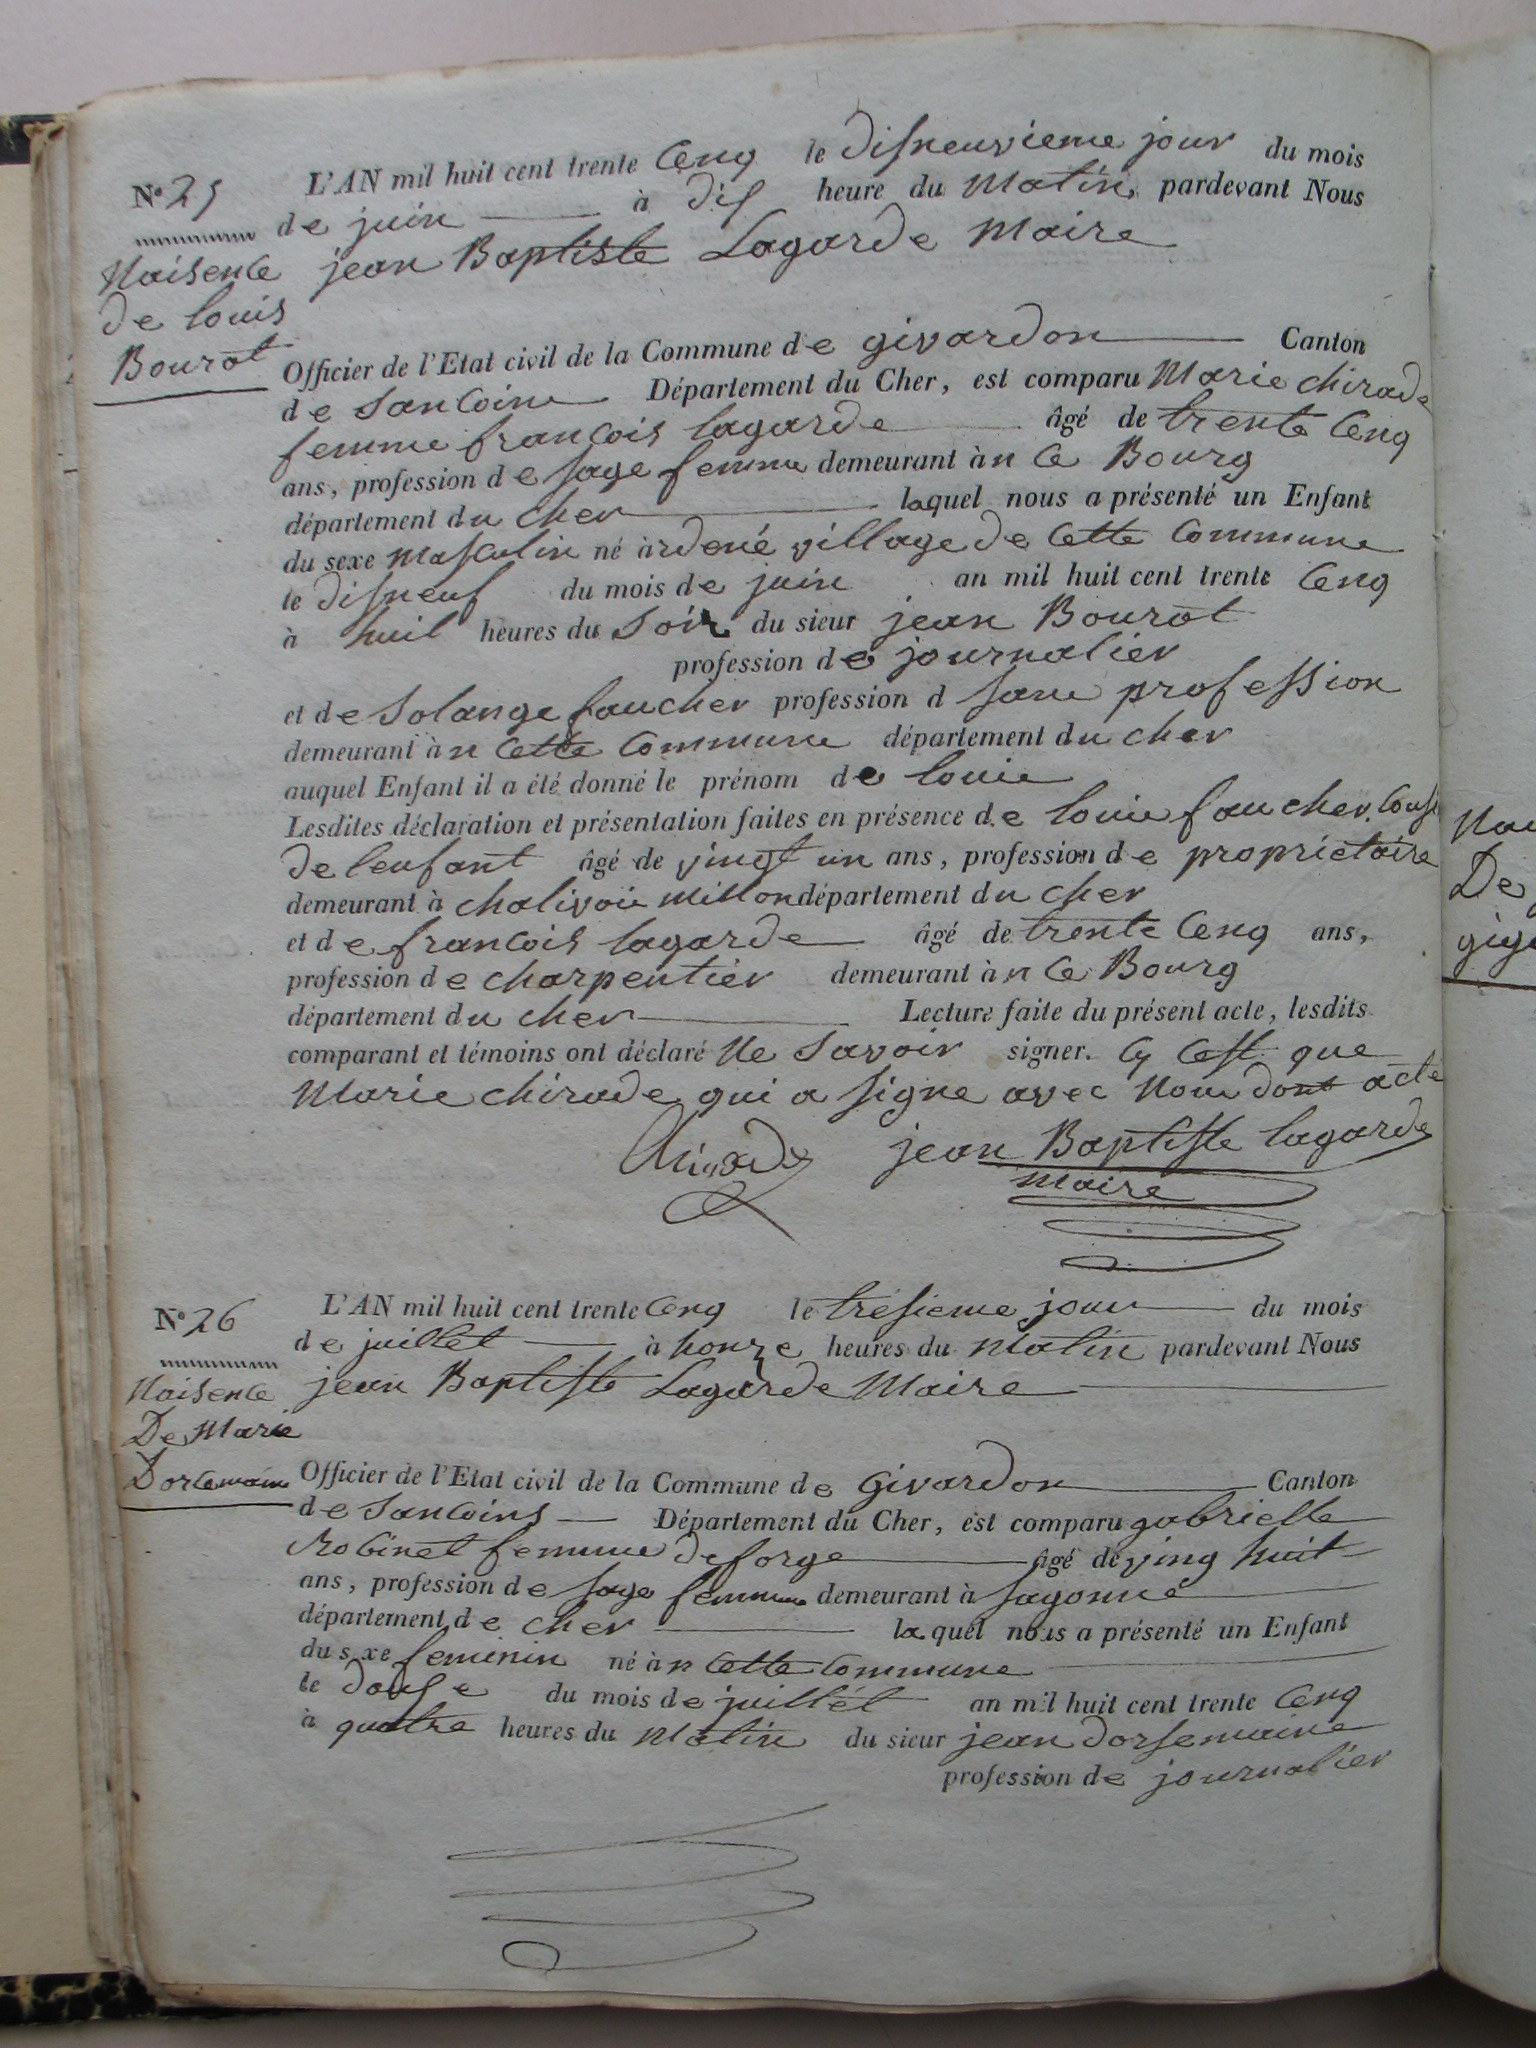 N.º 25
Naisence
de louis
Bourot
L'AN mil huit cent trente Cenq le disneuvieme jour du mois
de juin à dis heure du Matin, pardevant Nous
jean Baptiste Lagarde Maire
Officier de l'Etat civil de la Commune de givardon Canton
de Sancoins Département du Cher, est comparu Marie chirade
femme francois lagarde âgé de trente Cenq
ans, profession de sage femme demeurant àn Ce Bourg
département du cher laquel nous a présenté un Enfant
du sexe masculin né à village de Cette Commune
le disneuf du mois de juin an mil huit cent trente Cenq
à huit heures du Soir du sieur jean Bourot
profession de journalier
et de Solange faucher profession d sans profession
demeurant àn Cette Commune département du cher
auquel Enfant il a été donné le prénom de louis
Lesdites déclaration et présentation faites en présence de louis faucher
de lenfant âgé de vingt un ans, profession de proprietaire
demeurant à chalivoie Millon département du cher
et de francois lagarde âgé de trente Cenq ans,
profession de charpentier demeurant àn Ce Bourg
département du cher Lecture faite du présent acte, lesdits
comparant et témoins ont déclaré Ne Savoir signer. Cy Cest que
Marie chirade qui a signe avec Nous dont acte
Chirade jean Baptiste lagarde
maire
N.º 26
Naisence
De Marie
Dorcemaine
L'AN mil huit cent trente Cenq le tresieme jour du mois
de juillet à honze heures du Matin pardevant Nous
jean Baptiste Lagarde Maire
Officier de l'Etat civil de la Commune de Givardon Canton
de Sancoins Département du Cher, est comparu gabrielle
Robinet femme deforge âgé de ving huit
ans, profession de sage femme demeurant à sagonne
département de cher laquel nous a présenté un Enfant
du sexe feminin né àn Cette Commune
le douse du mois de juillet an mil huit cent trente Cenq
à quatre heures du Matin du sieur jean dorsemaine
profession de journalier
Nai
De
gig